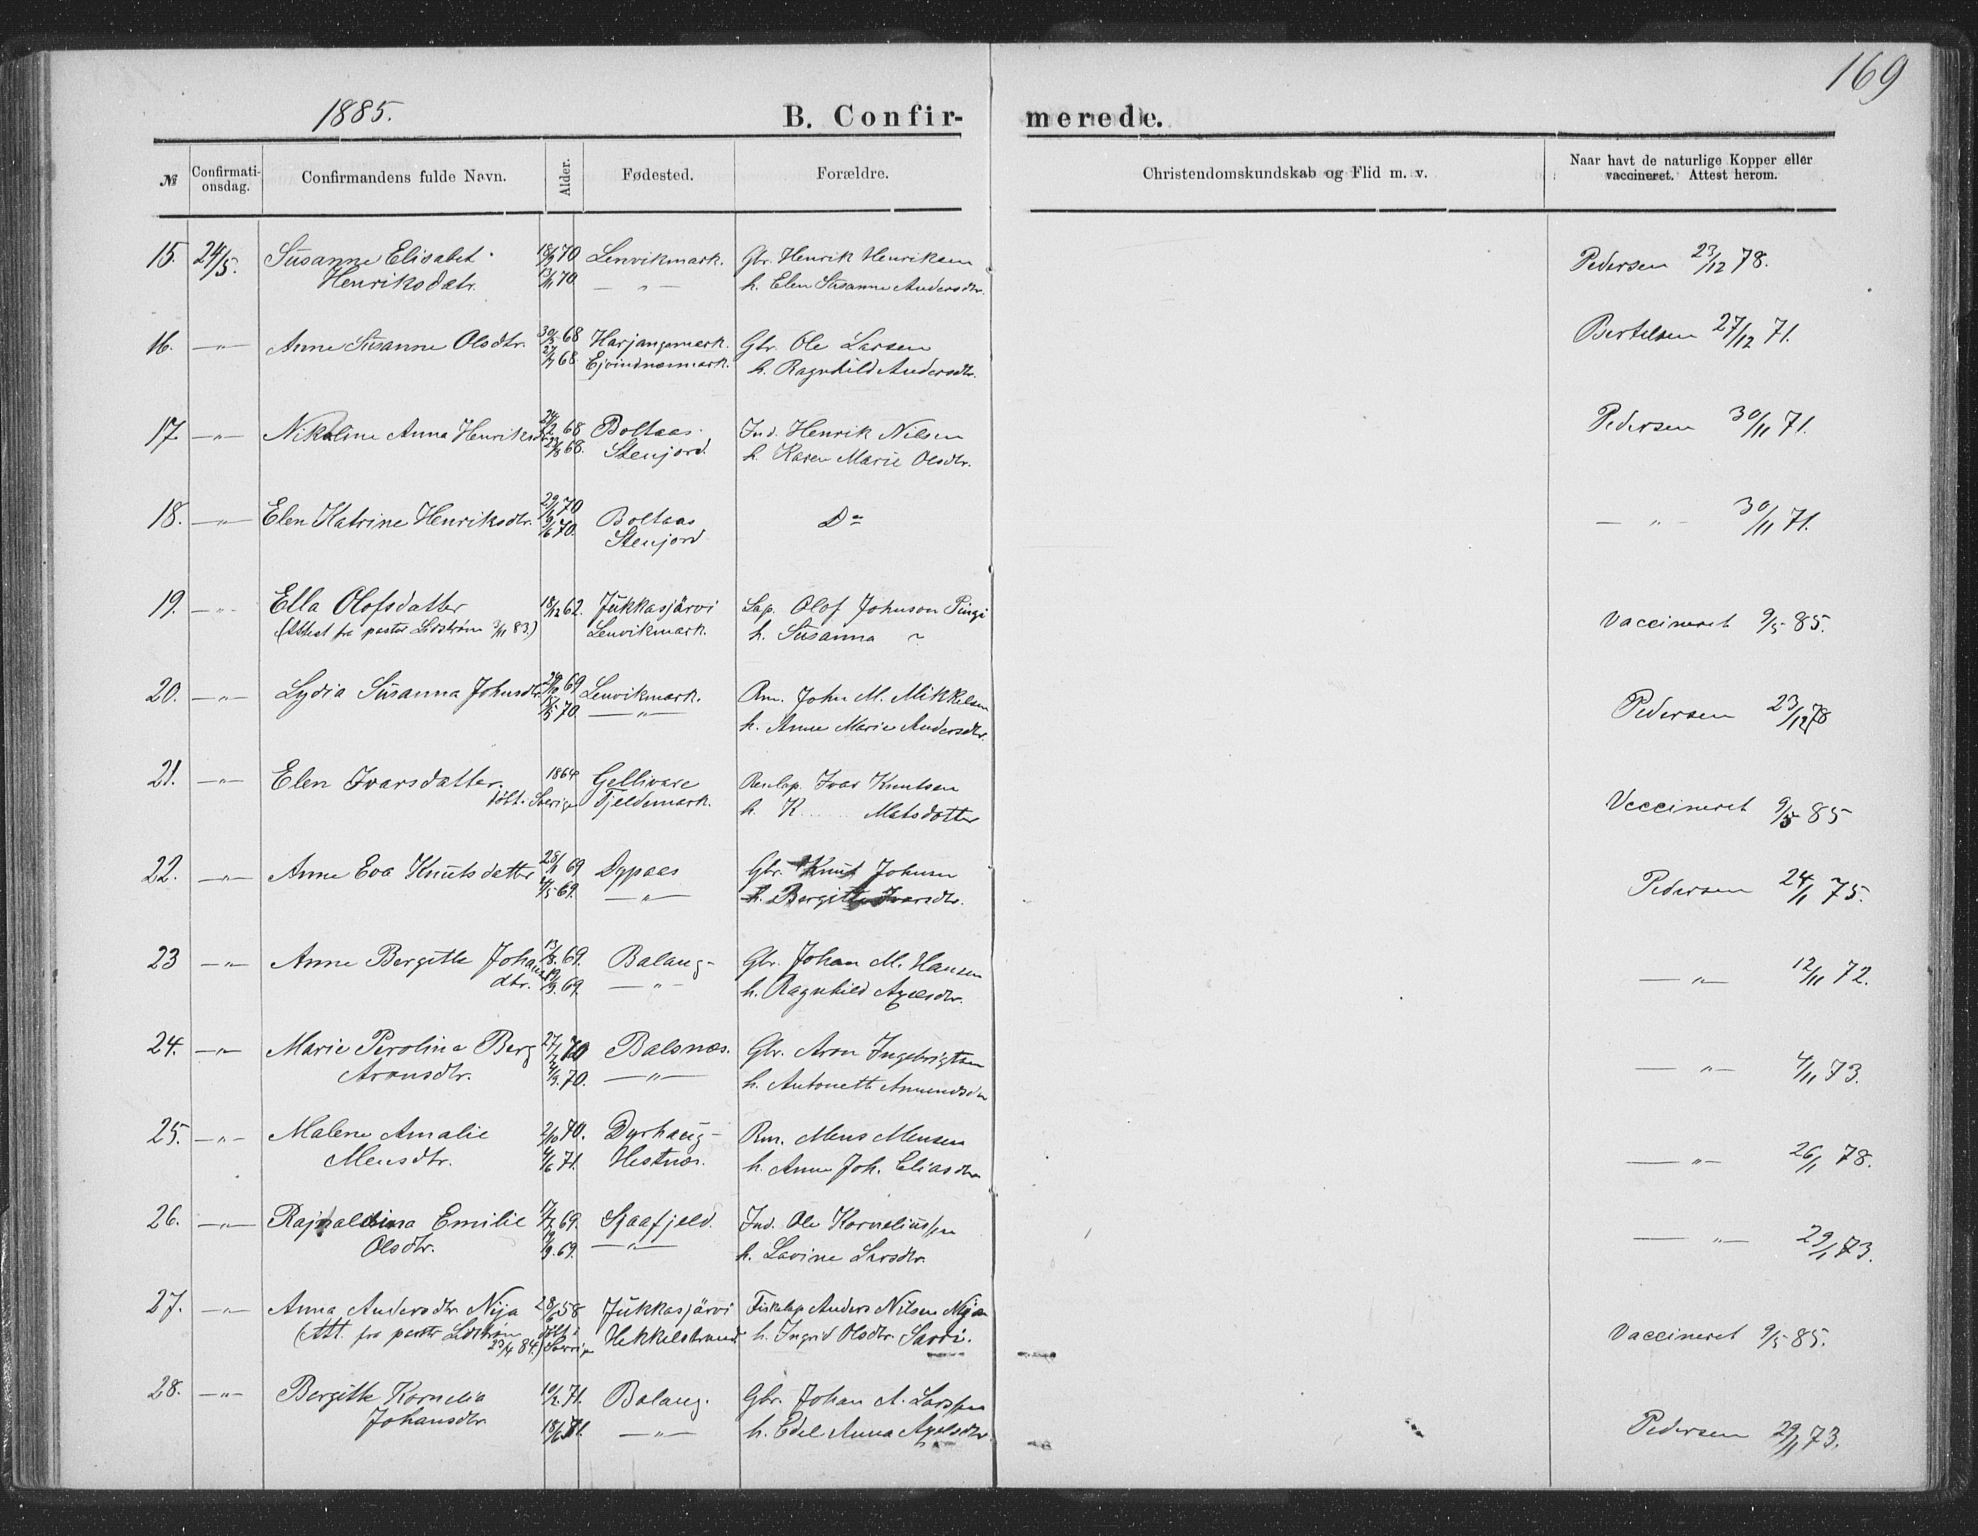 169
1885.
B. Confirmerede.
№ Confirmationsdag. Confirmandens fulde Navn. Alder. Fødested. Forældre. Christendomskundskab og Flid m. v. Naar havt de naturlige Kopper eller vaccineret. Attest herom.
15. 24/5. Susanne Elisabet 18/9 70 Lenvikmark. Gbr. Henrik Henriksen Pedersen 23/12 78.
Henriksdatr. 13/11 70 — " — h. Elen Susanne Andersdtr.
16. — " — Anne Susanne Olsdtr. 30/5 68 Harjangsmark. Gbr. Ole Larsen Bertelsen 27/12 71.
27/9 68 Ejvindnesmark. h. Ragnhild Andersdtr.
17 — " — Nikoline Anna Henriksdtr 24/2 68 Boltaas. Ind. Henrik Nilsen Pedersen 30/11 71.
23/8 68. Stenjord h. Karen Marie Olsdtr.
18. — " — Elen Katrine Henriksdtr. 29/3 70 Boltaas Do — " — 30/11 71.
9/6 70. Stenjord
19. — " — Ella Olofsdatter 18/12 62. Jukkasjärvi Lap. Olof Johnson Pingi Vaccineret 9/5 85.
(Attest fra pastor Lidstrøm 3/11 83.) Lenvikmark. h. Susanna ~
20. — " — Lydia Susanna Johnsdtr. 69 Lenvikmark. Rm. John M. Mikkelsen Pedersen 23/12 78
15/5 70 — " — h. Anne Marie Andersdtr.
21. — " — Elen Ivarsdatter. 1864 Gellivare Renlap. Ivar Knutsen Vaccineret 9/5 85
døbt i Sverige Fjeldemark. h. K..... Matsdatter
22. — " — Anne Eva Knutsdatter 28/1 69 Dypaas Gbr. Knut Johnsen Pedersen 24/1 75.
4/5 69. — " — h. Bergitte Ivarsdtr.
23 — " — Anne Bergitte Johansdtr. 13/8 69. Balang- Gbr. Johan M. Hansen — " — 12/11 72.
19/9 69. — " — h. Ragnhild Axelsdtr.
24. — " — Marie Perolina Berg 27/2 70 Balsnæs. Gbr. Aron Ingebrigtsen — " — 4/11 73.
Aronsdtr. 4/9 70. — " — h. Antonette Amundsdtr
25. — " — Malene Amalie 2/10 70. Dyrhaug- Rm. Mens Mensen — " — 26/1 78.
Mensdtr. 4/6 71. Hestnæs. h. Anne Joh. Eliasdtr
26. — " — Emilie 17/7 69. Sjaafjeld. Ind. Ole Korneliussen — " — 29/1 73.
Olsdtr. 19/9 69. — " — h. Lavine Larsdtr.
27. — " — Anna Andersdtr Nija 28/6 58 Jukkasjärvi Fiskelap Anders Nilsen Nija Vaccineret 9/5 85.
(Att. fra pastor Lidstrøm 84.) døbt i Sverige Hekkelstrand h. Ingrid Olsdtr. Sarri.
28. — " — Bergitte Kornelia 10/2 71. Balang. Gbr. Johan A. Larssen Pedersen 29/1 73.
Johansdtr. 18/6 71. — " — h. Edel Anna Axelsdtr.